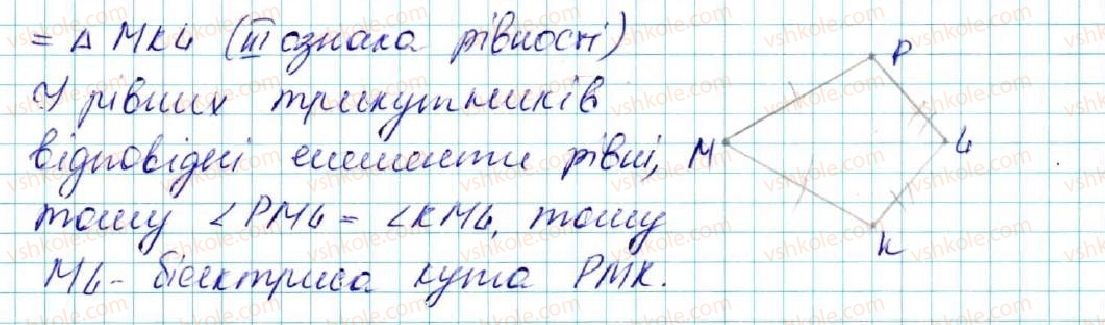 = Δ MKL (III ознака рівності)
У рівних трикутників
відповідні елементи рівні,
тому ∠PML = ∠KML, тому
ML - бісектриса кута PMK.
P
M
L
K